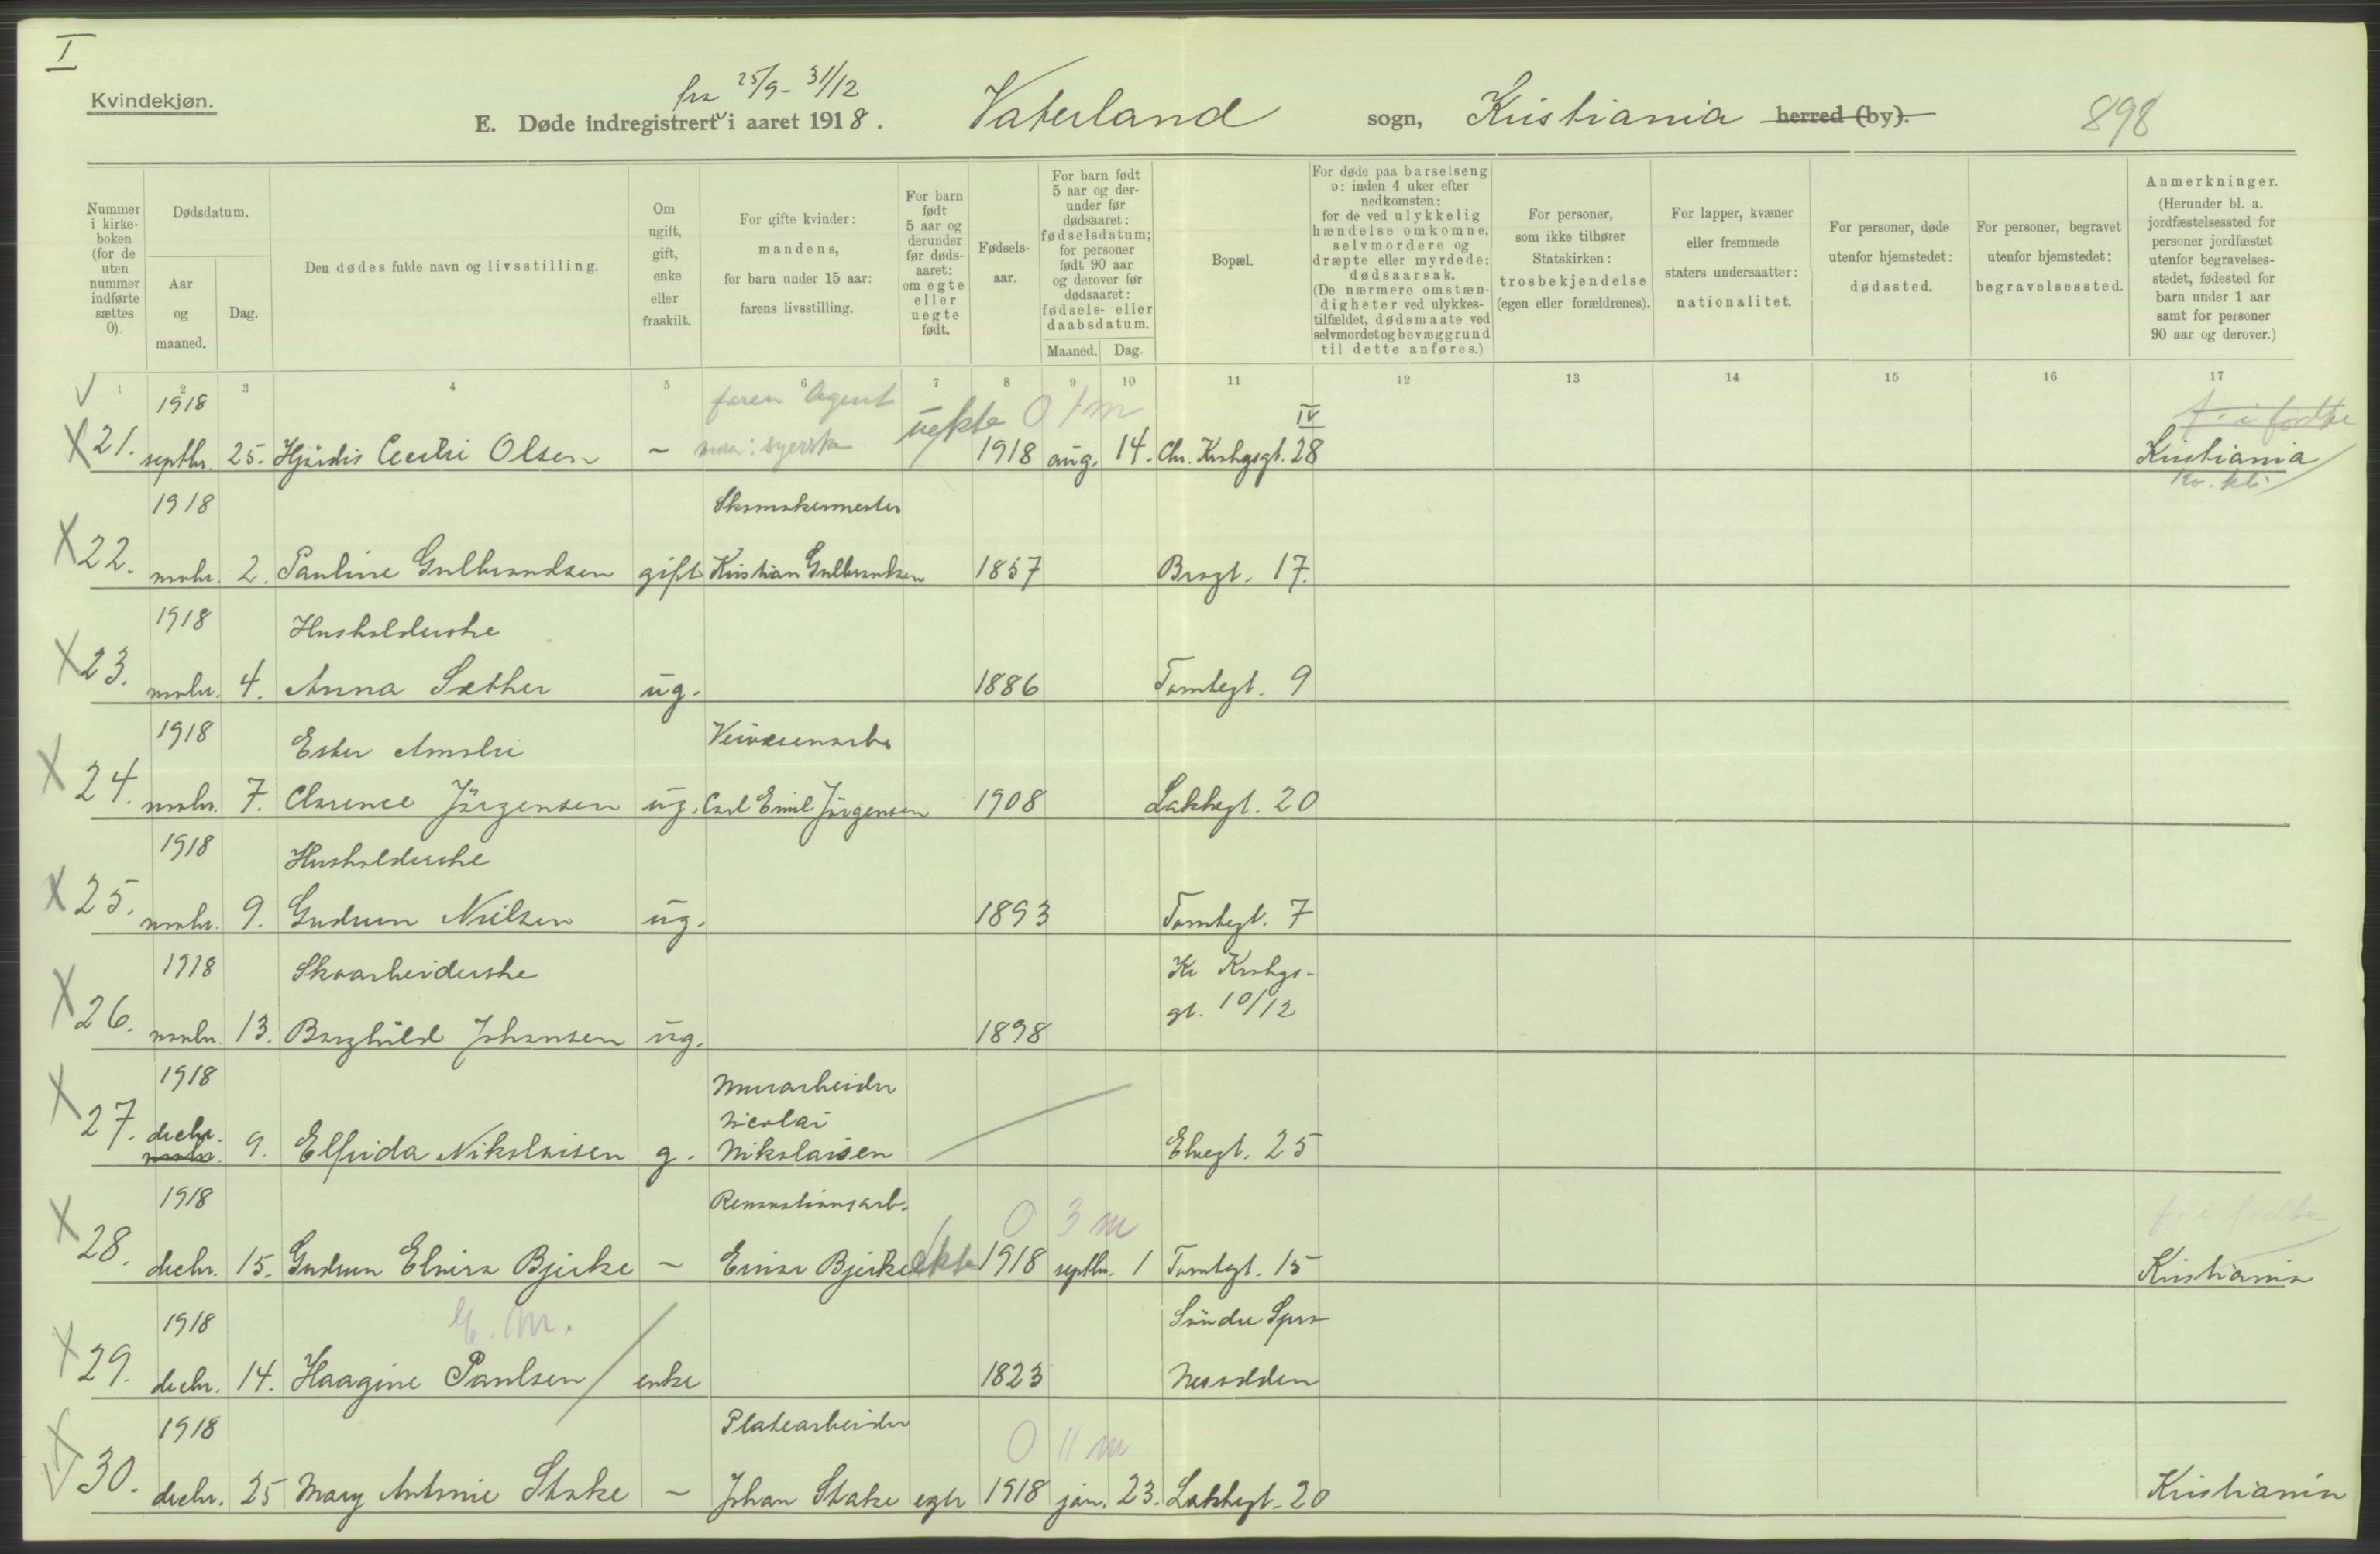 I
Kvindekjøn.
fra 25/9 - 31/12
E. Døde indregistrert i aaret 1918. Vaterland sogn, Kristiania herred (by).
898
Nummer i kirke-boken (for de uten nummer indførte sættes 0).
Dødsdatum.
Aar og maaned.
Dag.
Den dødes fulde navn og livsstilling.
Om ugift, gift, enke eller fraskilt.
For gifte kvinder: mandens, for barn under 15 aar: farens livsstilling.
For barn født 5 aar og derunder før døds-aaret: om egte eller uegte født.
Fødsels-aar.
For barn født 5 aar og der-under før dødsaaret: fødselsdatum; for personer født 90 aar og derover før dødsaaret: fødsels- eller daabsdatum.
Maaned. Dag.
Bopæl.
For døde paa barselseng ɔ: inden 4 uker efter nedkomsten: for de ved ulykkelig hændelse omkomne, selvmordere og dræpte eller myrdede: dødsaarsak. (De nærmere omstæn-digheter ved ulykkes-tilfældet, dødsmaate ved selvmordet og bevæggrund til dette anføres.)
For personer, som ikke tilhører Statskirken: trosbekjendelse (egen eller forældrenes).
For lapper, kvæner eller fremmede staters undersaatter: nationalitet.
For personer, døde utenfor hjemstedet: dødssted.
For personer, begravet utenfor hjemstedet: begravelsessted.
Anmerkninger. (Herunder bl. a. jordfæstelsessted for personer jordfæstet utenfor begravelses-stedet, fødested for barn under 1 aar samt for personer 90 aar og derover.)
1 2 3 4 5 6 7 8 9 10 11 12 13 14 15 16 17
1918 faren Agent uekte 0 1 m IV f. i fødte
21. septbr. 25. Hjördis Cecilie Olsen - mor: syerske 1918 aug. 14. Chr. Krohgsgt. 28 Kristiania
1918 Skomakermester
22. novbr. 2. Pauline Gulbrandsen gift Kristian Gulbrandsen 1857 Brogt. 17.
1918 Husholderske
23. novbr. 4. Anna Sæther ug. 1886 Tomtegt. 9
1918 Ester Amalie Veivæsenarb.
24. novbr. 7. Clarence Jörgensen ug. Carl Emil Jörgensen 1908 Lakkegt. 20
1918 Husholderske
25. novbr. 9. Gudrun Nielsen ug. 1893 Tomtegt. 7
1918 Skoarbeiderske Kr Krohgs-
26. novbr. 13. Borghild Johansen ug. 1898 gt. 10/12
1918 Murarbeider
27. decbr. Nicolai
novbr. 9. Elfrida Nikolaisen g. Nikolaisen Elvegt. 25
1918 Renovationsarb. 0 3 m f. i fødte
28. decbr. 15. Gudrun Elvira Bjerke - Einar Bjerke ekte 1918 septbr. 1 Tomtegt. 15 Kristiania
1918 E. M. Söndre Spro
29. decbr. 14. Haagine Paulsen enke 1823 Nesodden
1918 Platearbeider 0 11 m
30. decbr. 25 Mary Antonie Stake - Johan Stake egte 1918 jan. 23. Lakkegt. 20 Kristiania